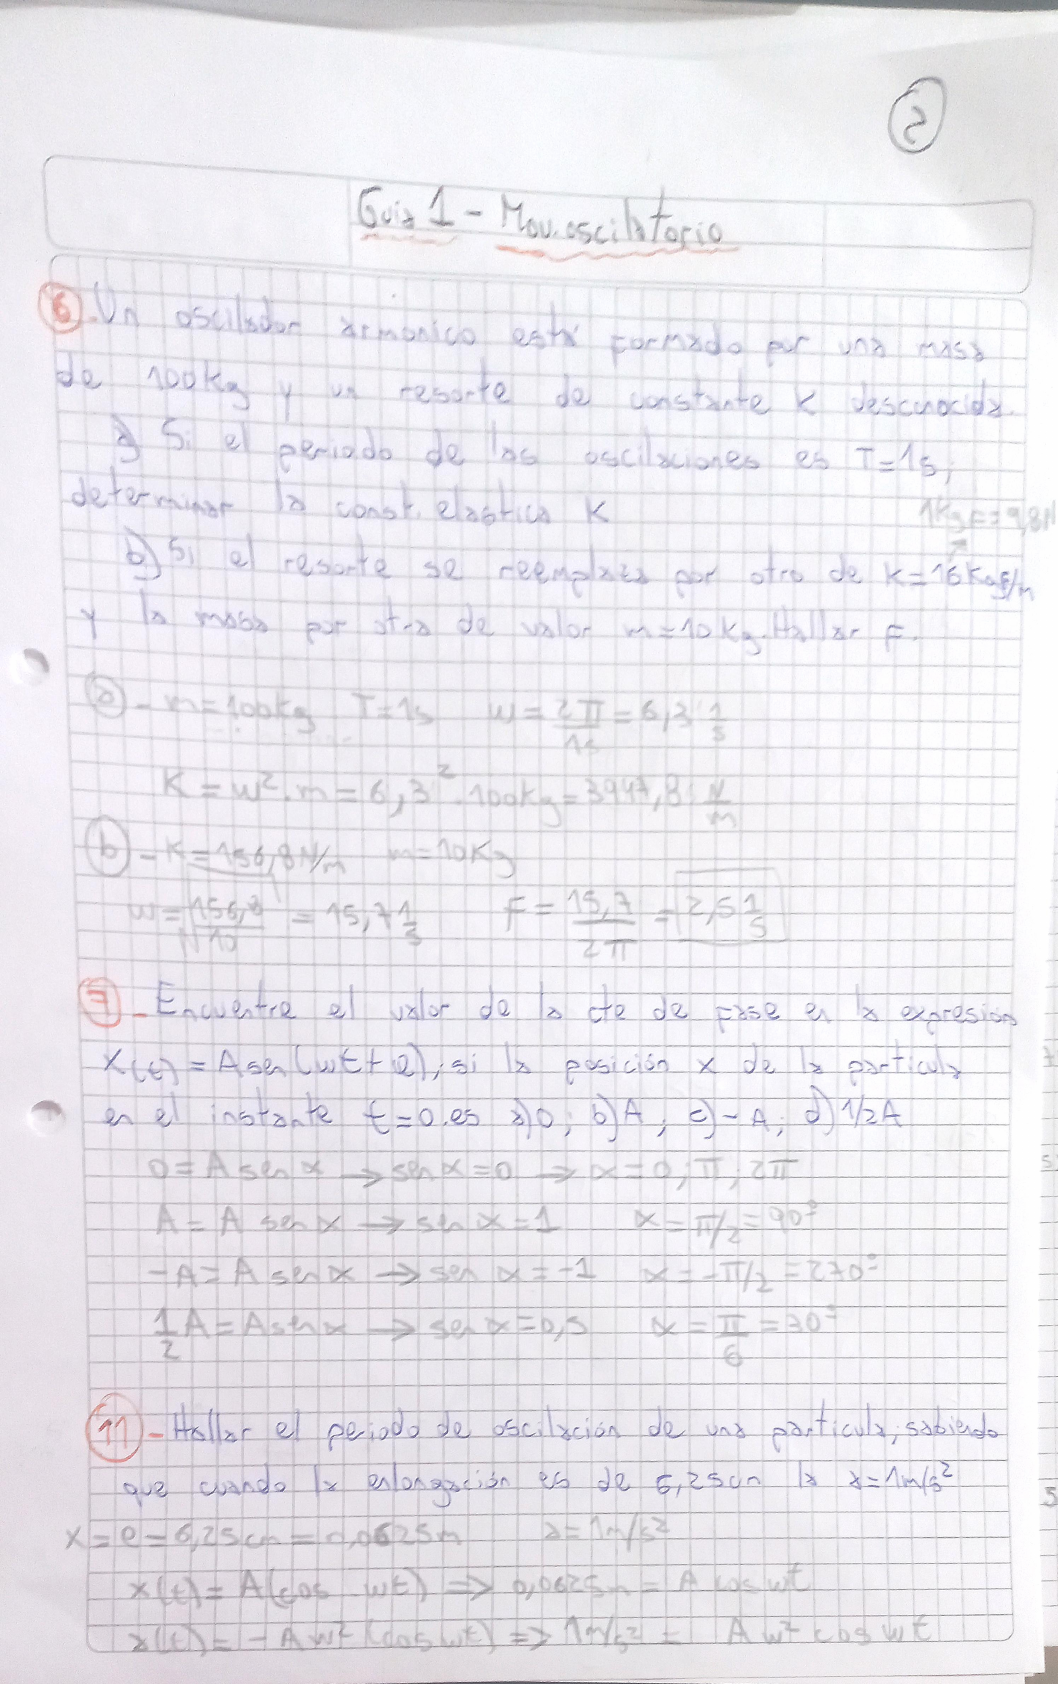 2
Guia 1 - Mov. oscilatorio
6. Un oscilador armonico está formado por una masa
de 100Kg y un resorte de constante K desconocida.
a) Si el periodo de las oscilaciones es T=1s,
determinar la const. elastica K
1KgF=9,8N
b) Si el resorte se reemplaza por otro de K=16Kgf/m
y la masa por otra de valor m=10Kg. Hallar F.
a- m=100kg T=1s w=2π/1s=6,3 1/s
K=w².m=6,3².100kg=3947,8 N/m
b- K=156,8N/m m=10Kg
w=√156,8/10=15,7 1/s F=15,7/2π=2,5 1/s
7- Encuentre el valor de la cte de fase en la expresión
X(t)=Asen(wt+φ), si la posición x de la particula
en el instante t=0 es a)0; b)A; c)-A; d)1/2A
0=A sen α → sen α=0 → α=0, π, 2π
A=A sen α → sen α=1 α=π/2=90º
-A=A sen α → sen α=-1 α=-π/2=270º
1/2 A=A sen α → sen α=0,5 α=π/6=30º
11- Hallar el periodo de oscilación de una particula, sabiendo
que cuando la enlongación es de 6,25cm la a=1m/s²
x=e=6,25cm=0,0625m a=1m/s²
x(t)=A(cos wt) ⇒ 0,0625m=A cos wt
a(t)=-Aw²(cos wt) ⇒ 1m/s²=Aw² cos wt